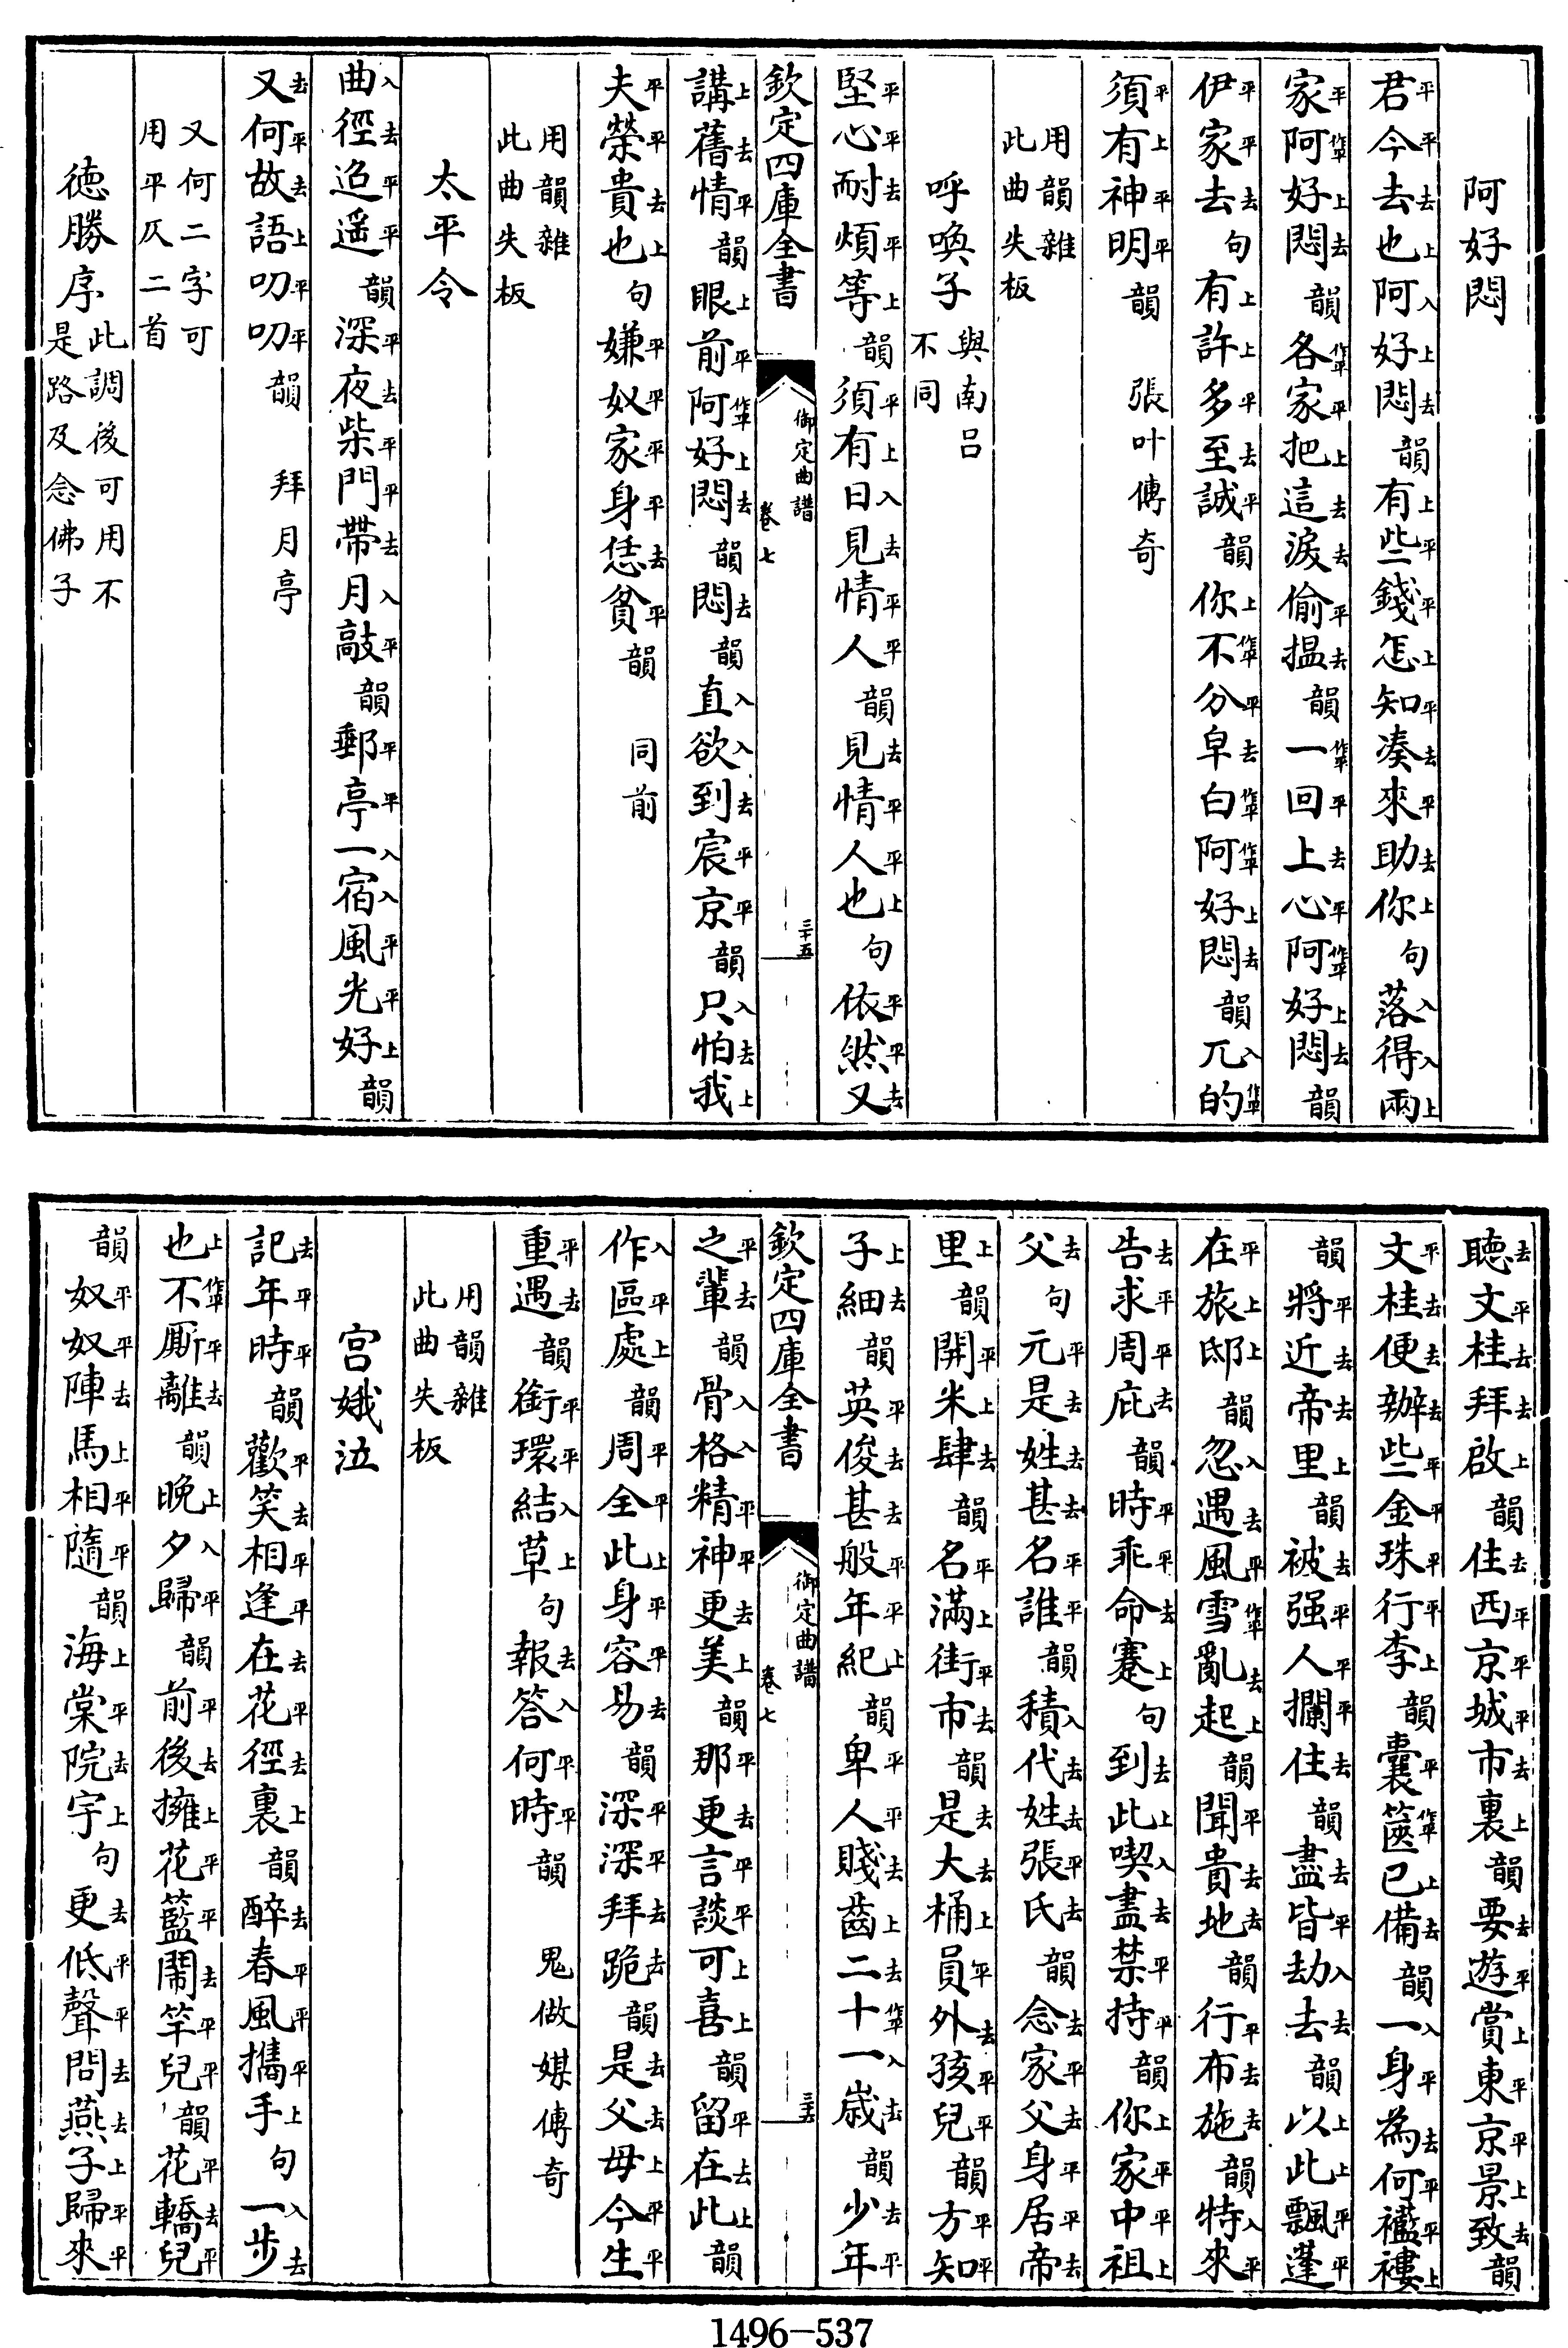 阿好悶
君今去也阿好悶韻有些錢怎知湊來助你句落得兩
家阿好悶韻各家把這淚偷揾韻一回上心阿好悶韻
伊家去句有許多至誠韻你不分皁白阿好悶韻兀的
須有神明韻　張叶傳奇
用韻雜
此曲失板
呼喚子與南呂
不同
堅心耐煩等韻須有日見情人韻見情人也句依然又
欽定四庫全書　御定曲譜　卷七　三十五
講舊情韻眼前阿好悶韻悶韻直欲到宸京韻只怕我
夫榮貴也句嫌奴家身恁貧韻　同前
用韻雜
此曲失板
太平令
曲徑迢遥韻深夜柴門帶月敲韻郵亭一宿風光好韻
又何故語叨叨韻　拜月亭
又何二字可
用平仄二首
德勝序此調後可用不
是路及念佛子
聽文桂拜啟韻住西京城市裏韻要遊賞東京景致韻
文桂便辦些金珠行李韻囊篋已備韻一身為何襤褸
韻將近帝里韻被强人攔住韻盡皆劫去韻以此飄蓬
在旅邸韻忽遇風雪亂起韻聞貴地韻行布施韻特來
告求周庇韻時乖命蹇句到此喫盡禁持韻你家中祖
父句元是姓甚名誰韻積代姓張氏韻念家父身居帝
里韻開米肆韻名滿街市韻是大桶員外孩兒韻方知
子細韻英俊甚般年紀韻卑人賤齒二十一歲韻少年
欽定四庫全書　御定曲譜　卷七　三十六
之輩韻骨格精神更美韻那更言談可喜韻留在此韻
作區處韻周全此身容易韻深深拜跪韻是父母今生
重遇韻銜環結草句報答何時韻　鬼做媒傳奇
用韻雜
此曲失板
宫娥泣
記年時韻歡笑相逢在花徑裏韻醉春風攜手句一步
也不厮離韻晚夕歸韻前後擁花籃鬧竿兒韻花轎兒
韻奴奴陣馬相隨韻海棠院宇句更低聲問燕子歸來
1496-537